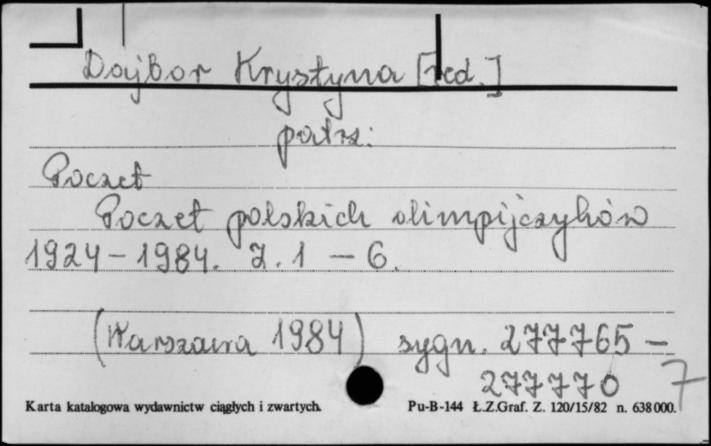 Dajbor Krystyna [red.]
patrz:
Poczet
Poczet polskich olimpijczyków
1924-1984. Z. 1 - 6.
(Warszawa 1984) sygn. 277765 -
277770 7
Karta katalogowa wydawnictw ciągłych i zwartych. Pu-B-144 Ł.Z.Graf. Z. 120/15/82 n. 638000.